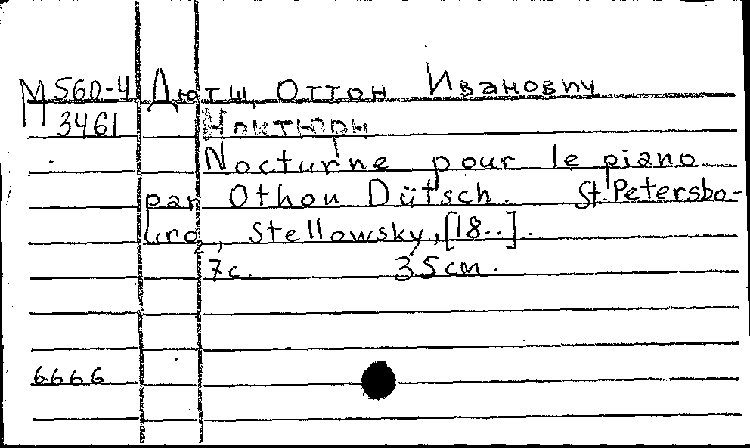 М 560-4 Дютш, Оттон Иванович
3461 Ноктюрн
Nocturne pour le piano
par Othon Dütsch. St. Petersbo-
urg, Stellowsky, [18..].
7с. 35cm.
6666